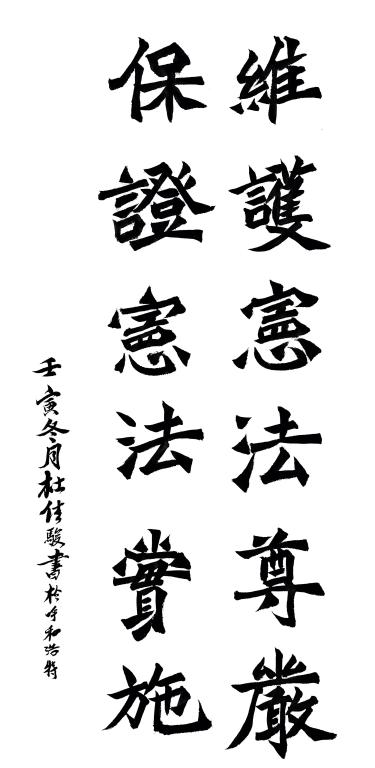 維護憲法尊嚴
保證憲法實施
壬寅冬月杜佳駿書於呼和浩特